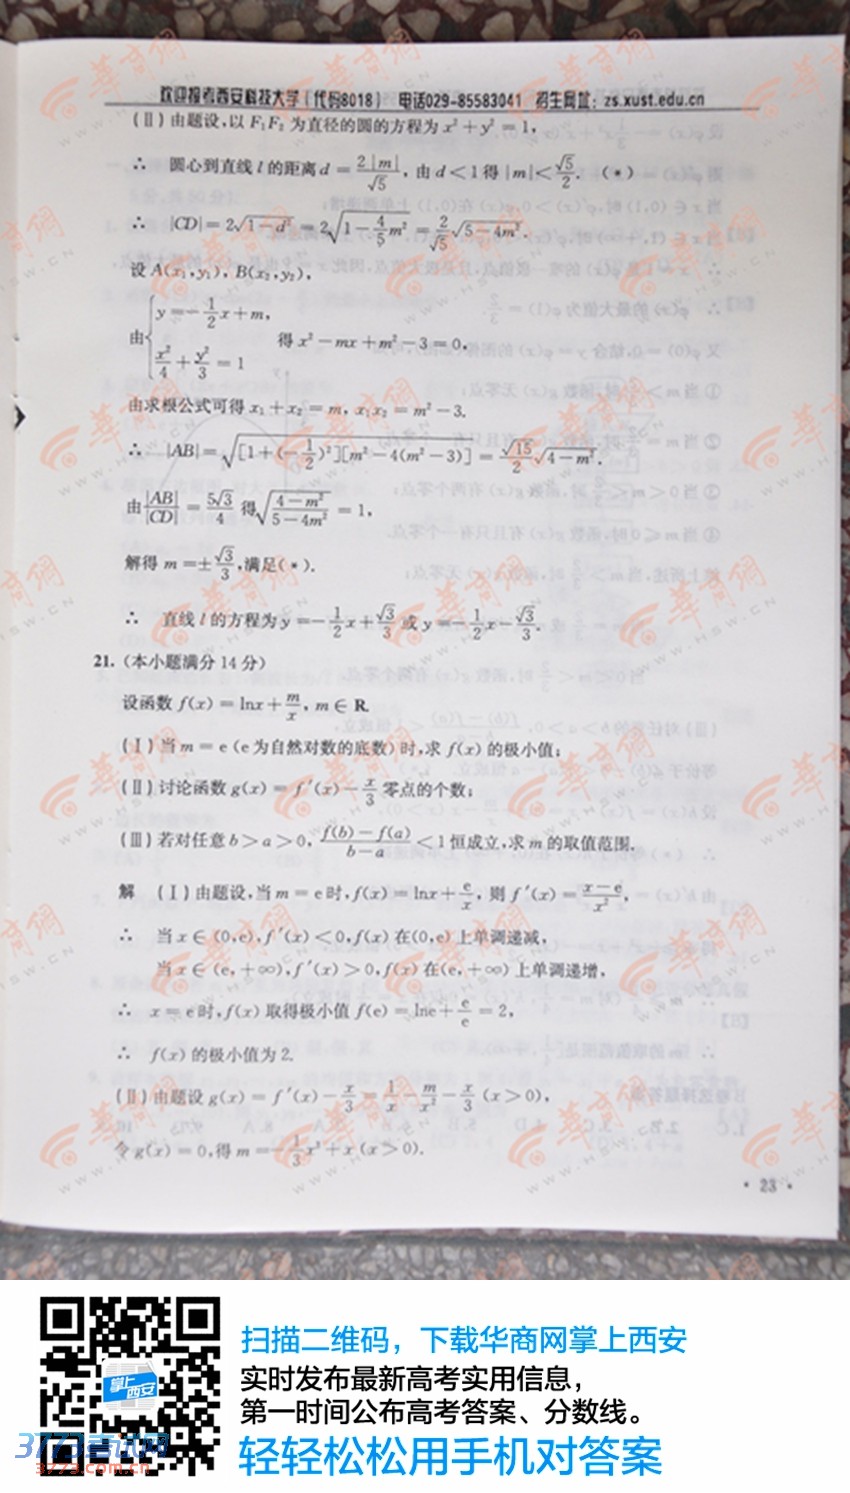 欢迎报考西安科技大学(代码8018) 电话029-85583041 招生网址:zs.xust.edu.cn
(Ⅱ)由题设,以 F₁F₂ 为直径的圆的方程为 x²+y²=1,
∴ 圆心到直线 l 的距离 d=2|m|/√5, 由 d<1 得 |m|<√5/2. (*)
∴ |CD|=2√(1-d²)=2√(1-4/5m²)=2/√5√(5-4m²).
设 A(x₁,y₁), B(x₂,y₂),
由{y=-1/2x+m, x²/4+y²/3=1 得 x²-mx+m²-3=0,
由求根公式可得 x₁+x₂=m, x₁x₂=m²-3.
∴ |AB|=√([1+(-1/2)²][m²-4(m²-3)])=√15/2√(4-m²).
由|AB|/|CD|=5√3/4 得√((4-m²)/(5-4m²))=1,
解得 m=±√3/3,满足(*).
∴ 直线 l 的方程为 y=-1/2x+√3/3 或 y=-1/2x-√3/3.
21. (本小题满分 14 分)
设函数 f(x)=lnx+m/x, m∈R.
(Ⅰ)当 m=e(e为自然对数的底数)时,求 f(x)的极小值;
(Ⅱ)讨论函数 g(x)=f′(x)-x/3 零点的个数;
(Ⅲ)若对任意 b>a>0, (f(b)-f(a))/(b-a)<1 恒成立,求 m 的取值范围.
解 (Ⅰ)由题设,当 m=e 时,f(x)=lnx+e/x, 则 f′(x)=(x-e)/x²,
∴ 当 x∈(0,e),f′(x)<0,f(x)在(0,e)上单调递减,
当 x∈(e,+∞),f′(x)>0,f(x)在(e,+∞)上单调递增,
∴ x=e时,f(x)取得极小值 f(e)=lne+e/e=2,
∴ f(x)的极小值为 2.
(Ⅱ)由题设 g(x)=f′(x)-x/3=1/x-m/x²-x/3 (x>0),
令 g(x)=0,得 m=-1/3x³+x(x>0).
· 23 ·
华商网
WWW.HSW.CN
掌上
西安
3773考试网
3773.com.cn
扫描二维码,下载华商网掌上西安
实时发布最新高考实用信息,
第一时间公布高考答案、分数线。
轻轻松松用手机对答案